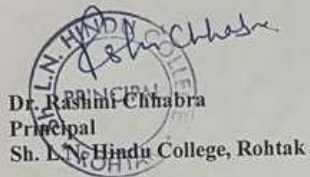 Rshri Chhabra
Sh. L.N. HINDU COLLEGE
PRINCIPAL
ROHTAK
Dr. Rashmi Chhabra
Principal
Sh. L.N. Hindu College, Rohtak